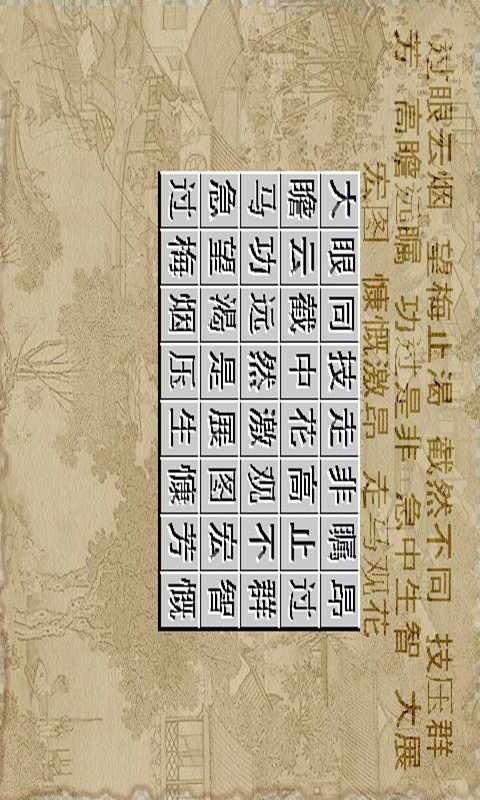 过眼云烟 望梅止渴 截然不同 技压群
芳 高瞻远瞩 功过是非 急中生智 大展
宏图 慷慨激昂 走马观花
大眼同技走非瞩昂
瞻云截中花高止过
马功远然激观不群
急望渴是展图宏智
过梅烟压生慷芳慨